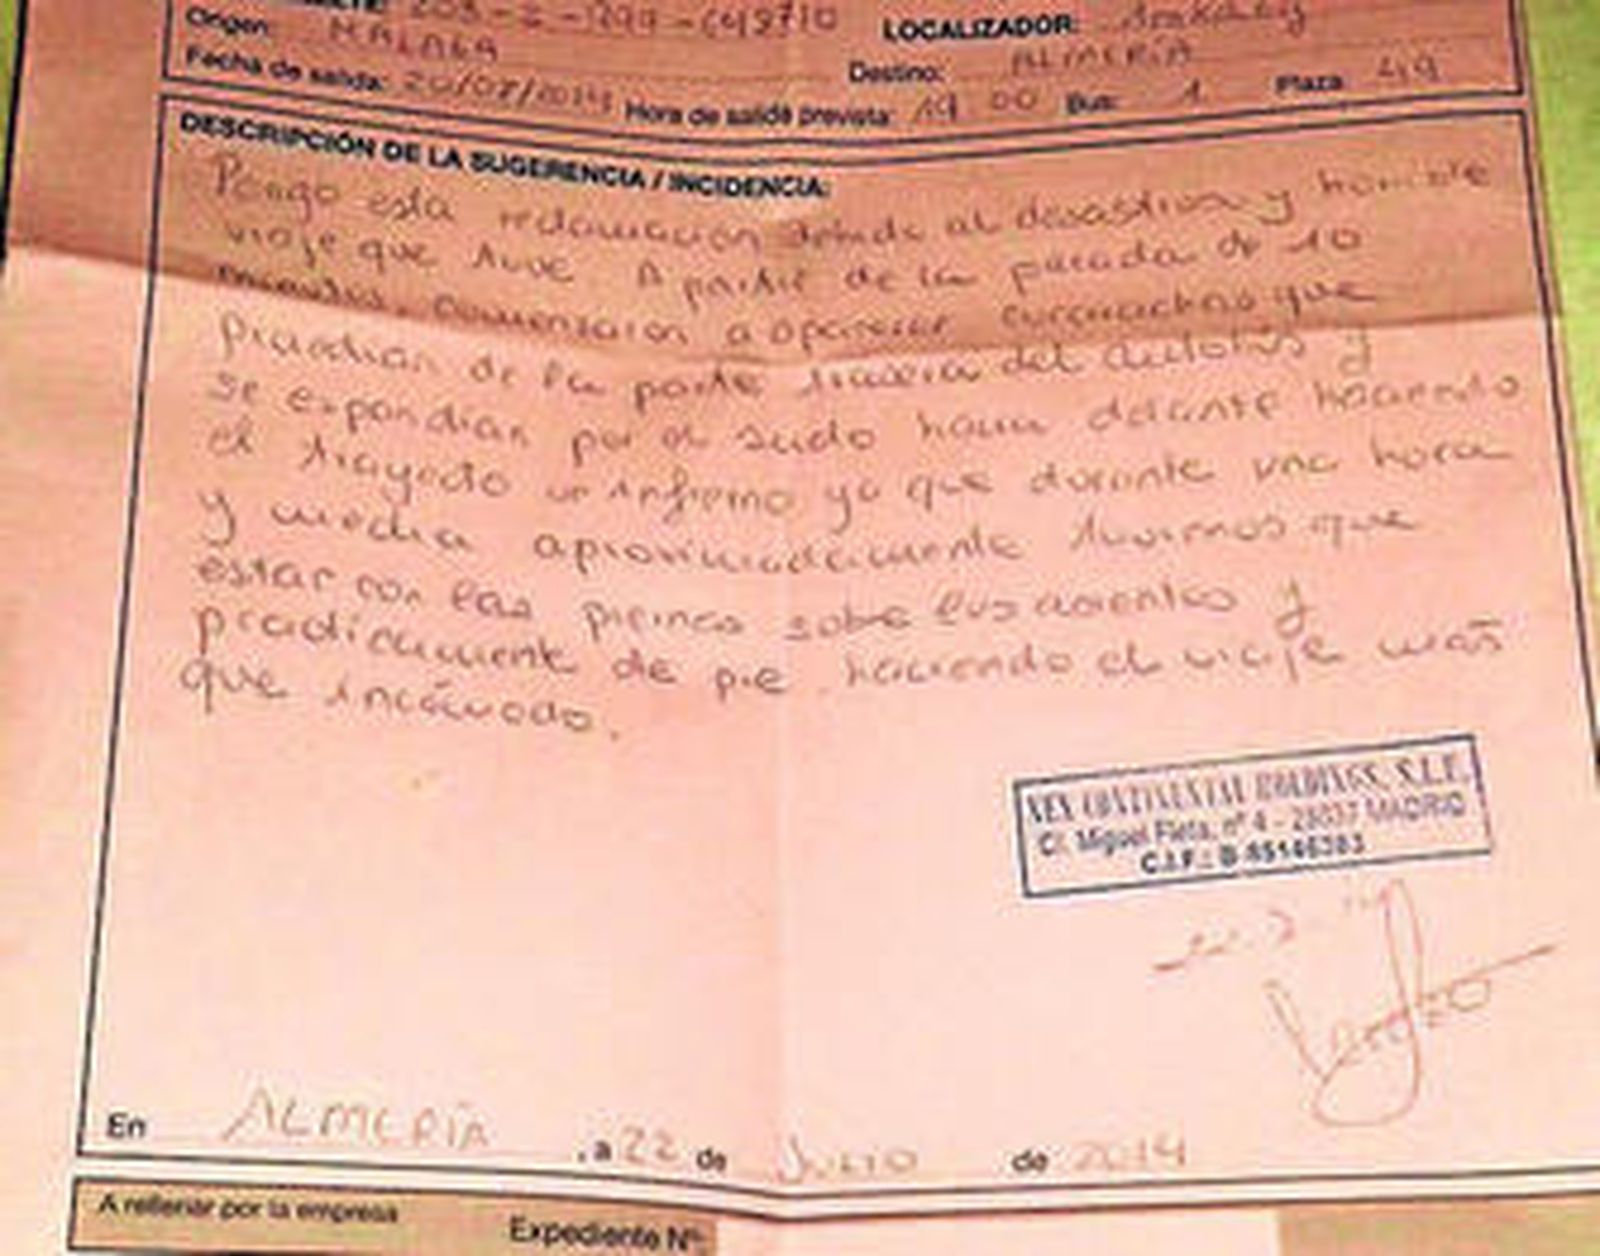 Origen: MALAGA LOCALIZADOR:
Fecha de salida: 20/07/2014 Hora de salida prevista: 19 00 Destino: ALMERÍA Bus: 1 Plaza: 49
DESCRIPCIÓN DE LA SUGERENCIA / INCIDENCIA:
Pongo esta reclamacion debido al desastroso y horrible
viaje que tuve A partir de la parada de 10
minutos, comenzaron a aparecer cucarachas que
de la parte trasera del autobus y
se expandian por el suelo hacia delante haciendo
el trayecto un infierno ya que durante una hora
y media aproximadamente tuvimos que
estar con las piernas sobre los asientos y
practicamente de pie haciendo el viaje más
que incómodo.
NEX CONTINENTAL HOLDINGS, S.L.E.
C/. Miguel Fleta, nº 4 - 28037 MADRID
C.I.F.: B-85146363
En ALMERÍA , a 22 de Julio de 2014
A rellenar por la empresa
Expediente Nº: